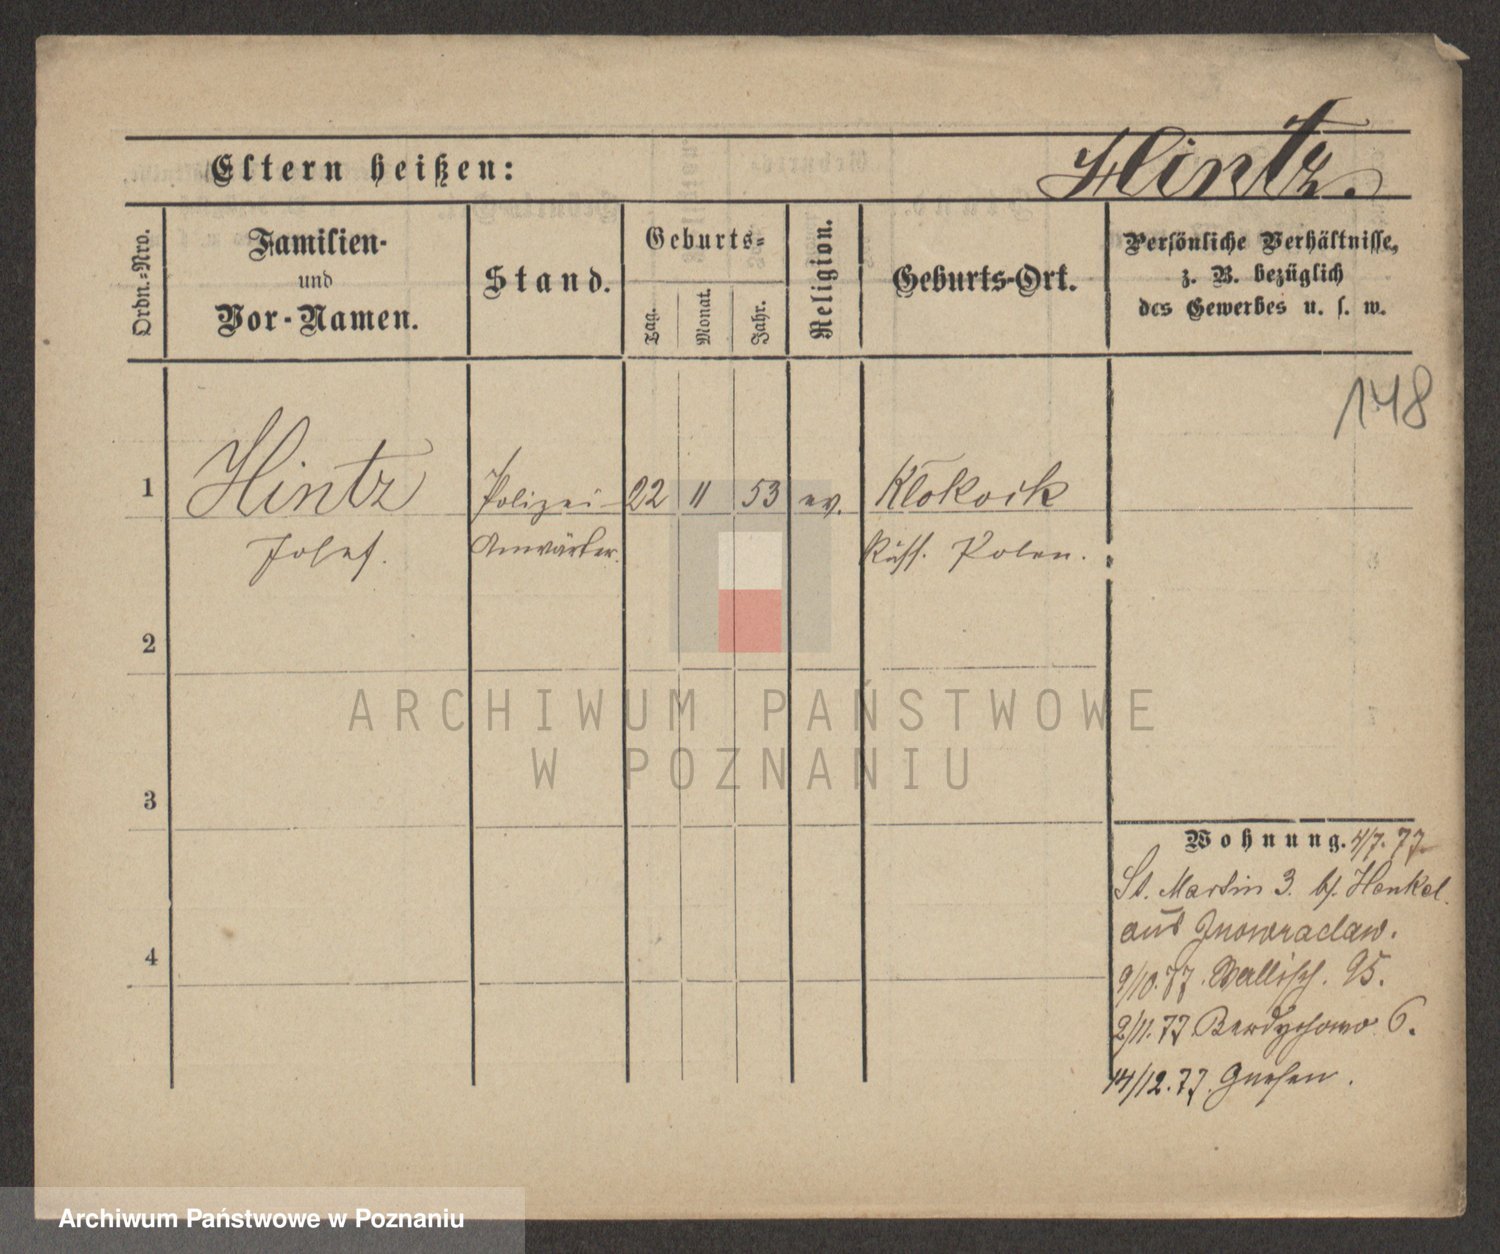 Hintz.
Eltern heißen:
Ordn.=Nro.
Familien-
und
Vor-Namen.
Stand.
Geburts=
Tag.
Monat.
Jahr.
Religion.
Geburts-Ort.
Persönliche Verhältnisse,
z. B. bezüglich
des Gewerbes u. s. w.
148
1 Hintz Polizei 22 11 53 ev. Klokock
Josef. Anwärter. Russ. Polen.
2
3
4
ARCHIWUM PAŃSTWOWE
W POZNANIU
Wohnung. 4/7. 77
St. Martin 3. bf. Henkel.
aus Inowraclaw.
9/10. 77. Wallisch. 95.
2/11. 77 Berdychowo 6.
14/12. 77. Gnesen.
Archiwum Państwowe w Poznaniu